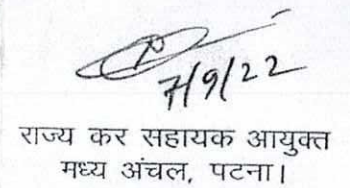 7/9/22
राज्य कर सहायक आयुक्त
मध्य अंचल, पटना।